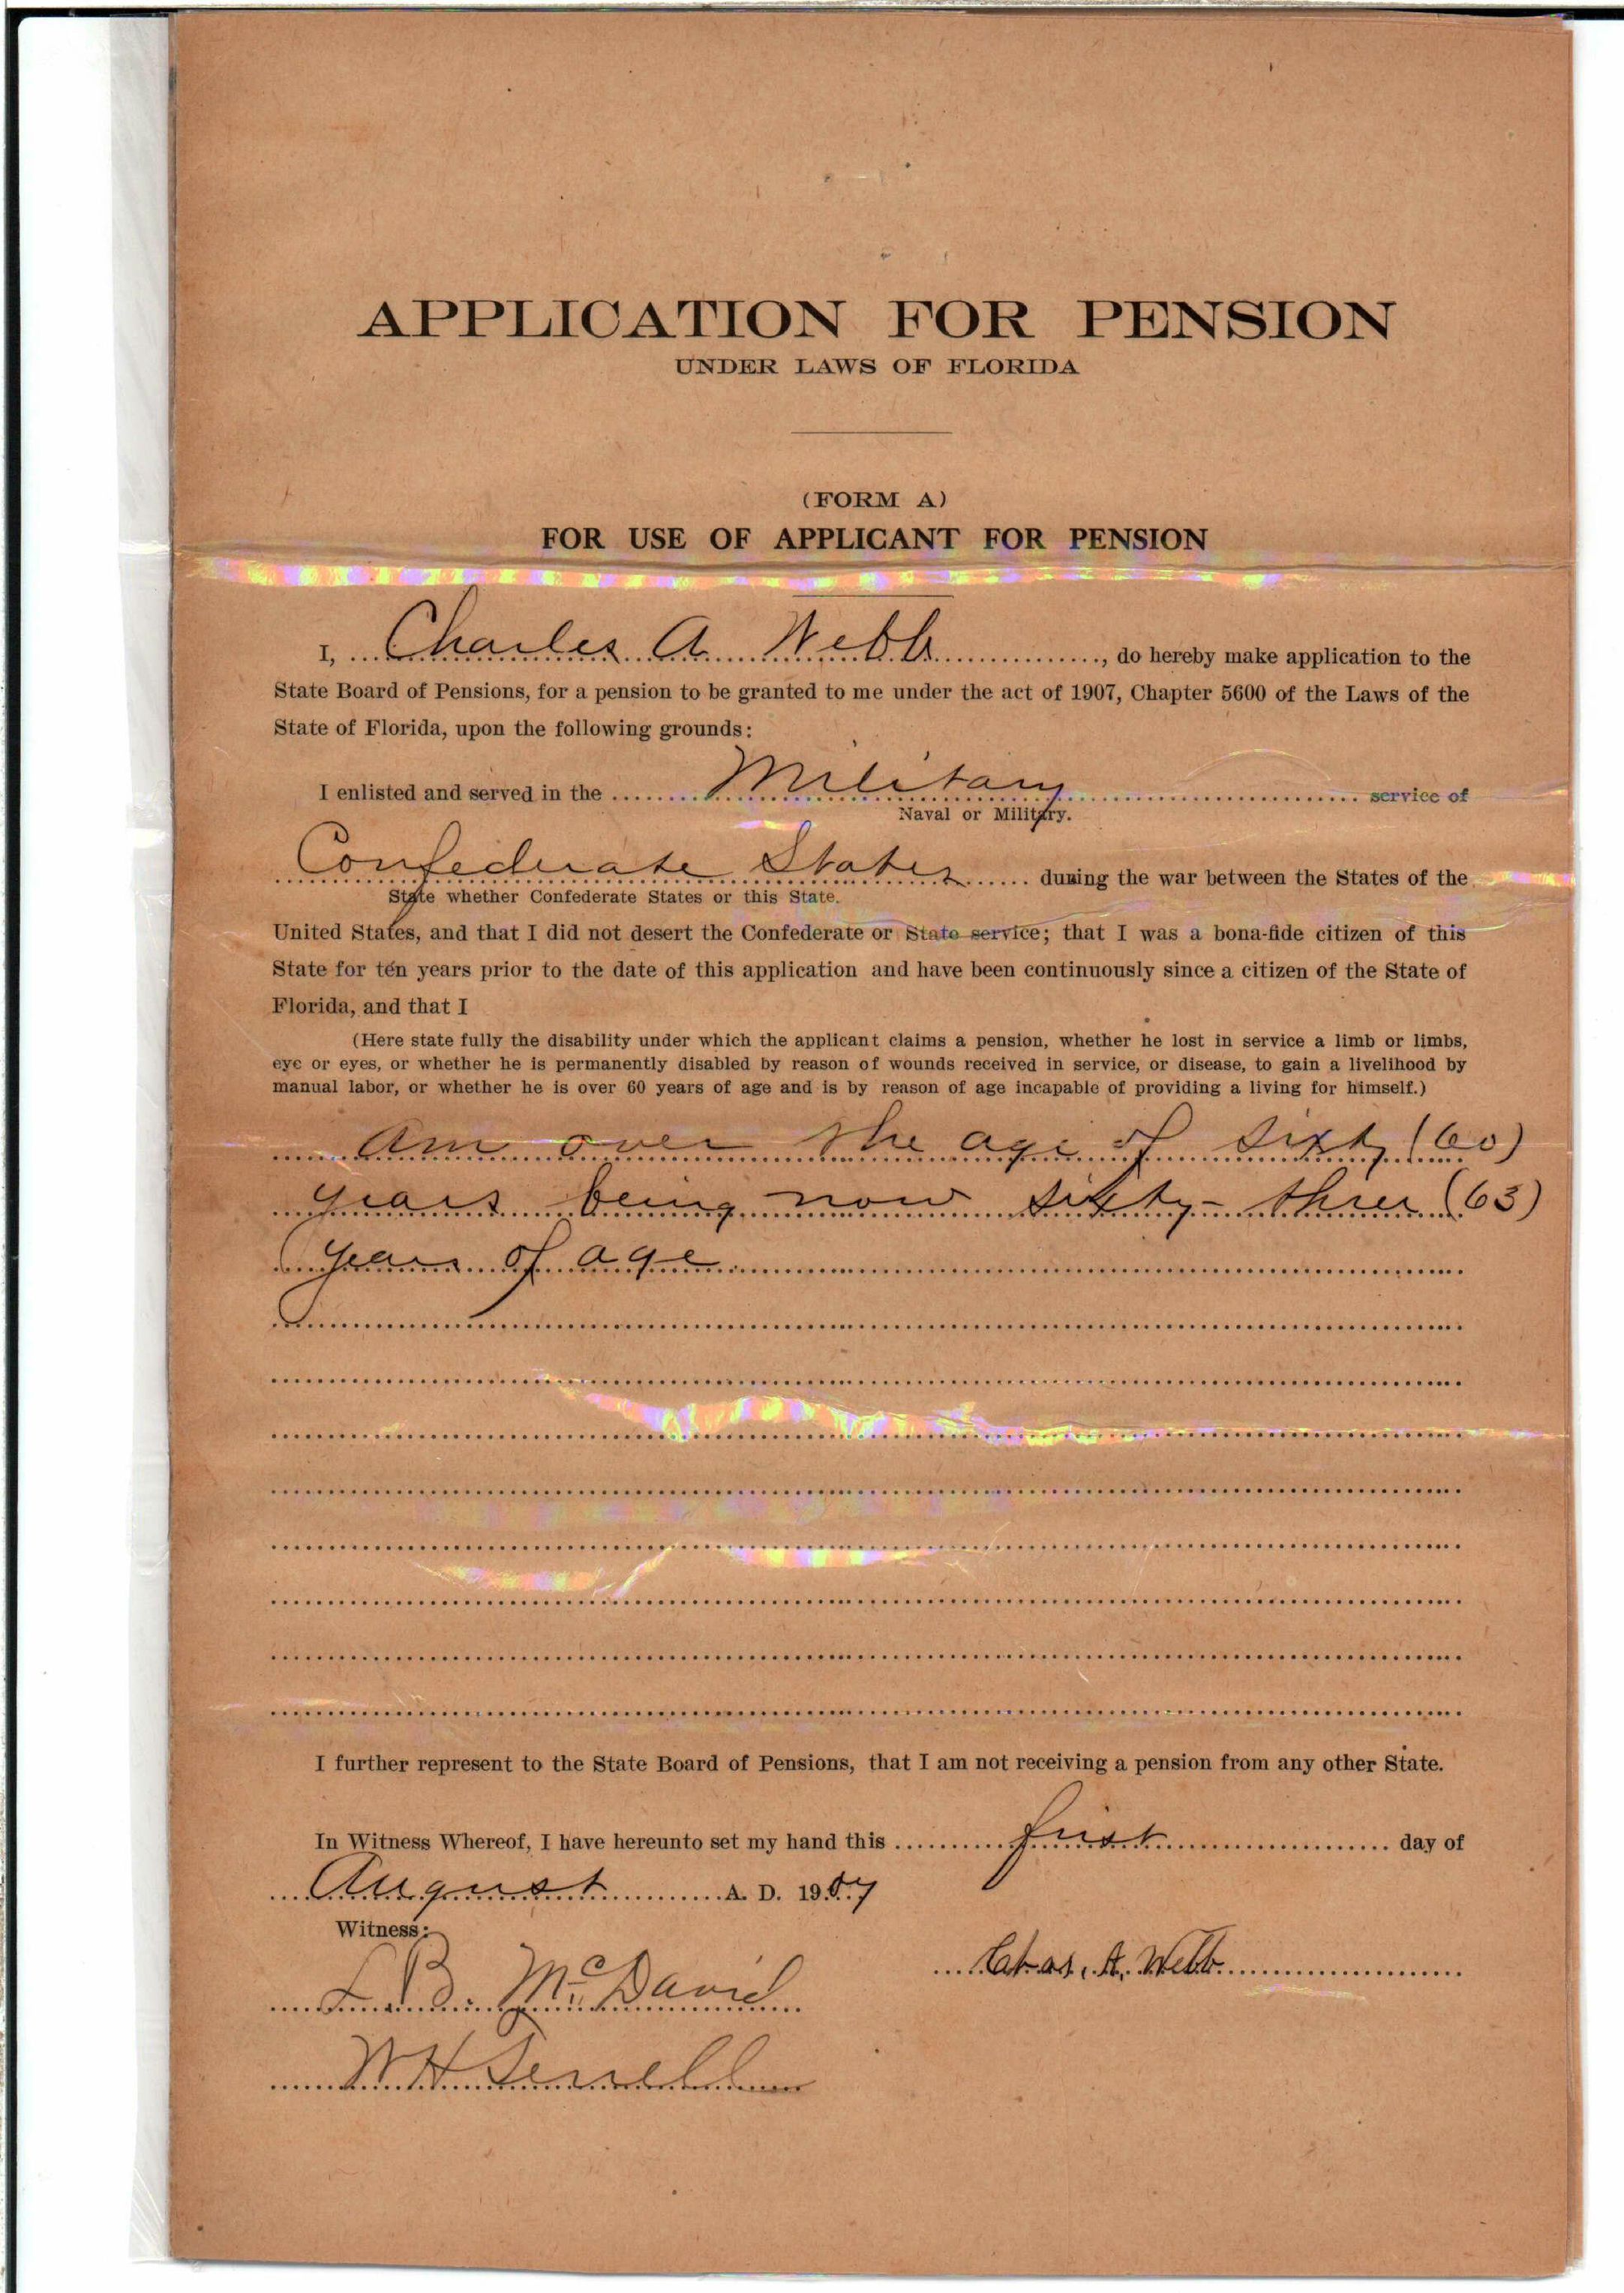 APPLICATION FOR PENSION
UNDER LAWS OF FLORIDA
(FORM A)
FOR USE OF APPLICANT FOR PENSION
I, Charles A Webb, do hereby make application to the
State Board of Pensions, for a pension to be granted to me under the act of 1907, Chapter 5600 of the Laws of the
State of Florida, upon the following grounds:
I enlisted and served in the Military service of
Naval or Military.
Confederate States during the war between the States of the
State whether Confederate States or this State.
United States, and that I did not desert the Confederate or State service; that I was a bona-fide citizen of this
State for ten years prior to the date of this application and have been continuously since a citizen of the State of
Florida, and that I
(Here state fully the disability under which the applicant claims a pension, whether he lost in service a limb or limbs,
eye or eyes, or whether he is permanently disabled by reason of wounds received in service, or disease, to gain a livelihood by
manual labor, or whether he is over 60 years of age and is by reason of age incapable of providing a living for himself.)
Am over the age of sixty (60)
years being now sixty-three (63)
years of age
I further represent to the State Board of Pensions, that I am not receiving a pension from any other State.
In Witness Whereof, I have hereunto set my hand this first day of
August A. D. 1907
Witness:
Chas. A. Webb
L. B. McDavid
W H Terrell